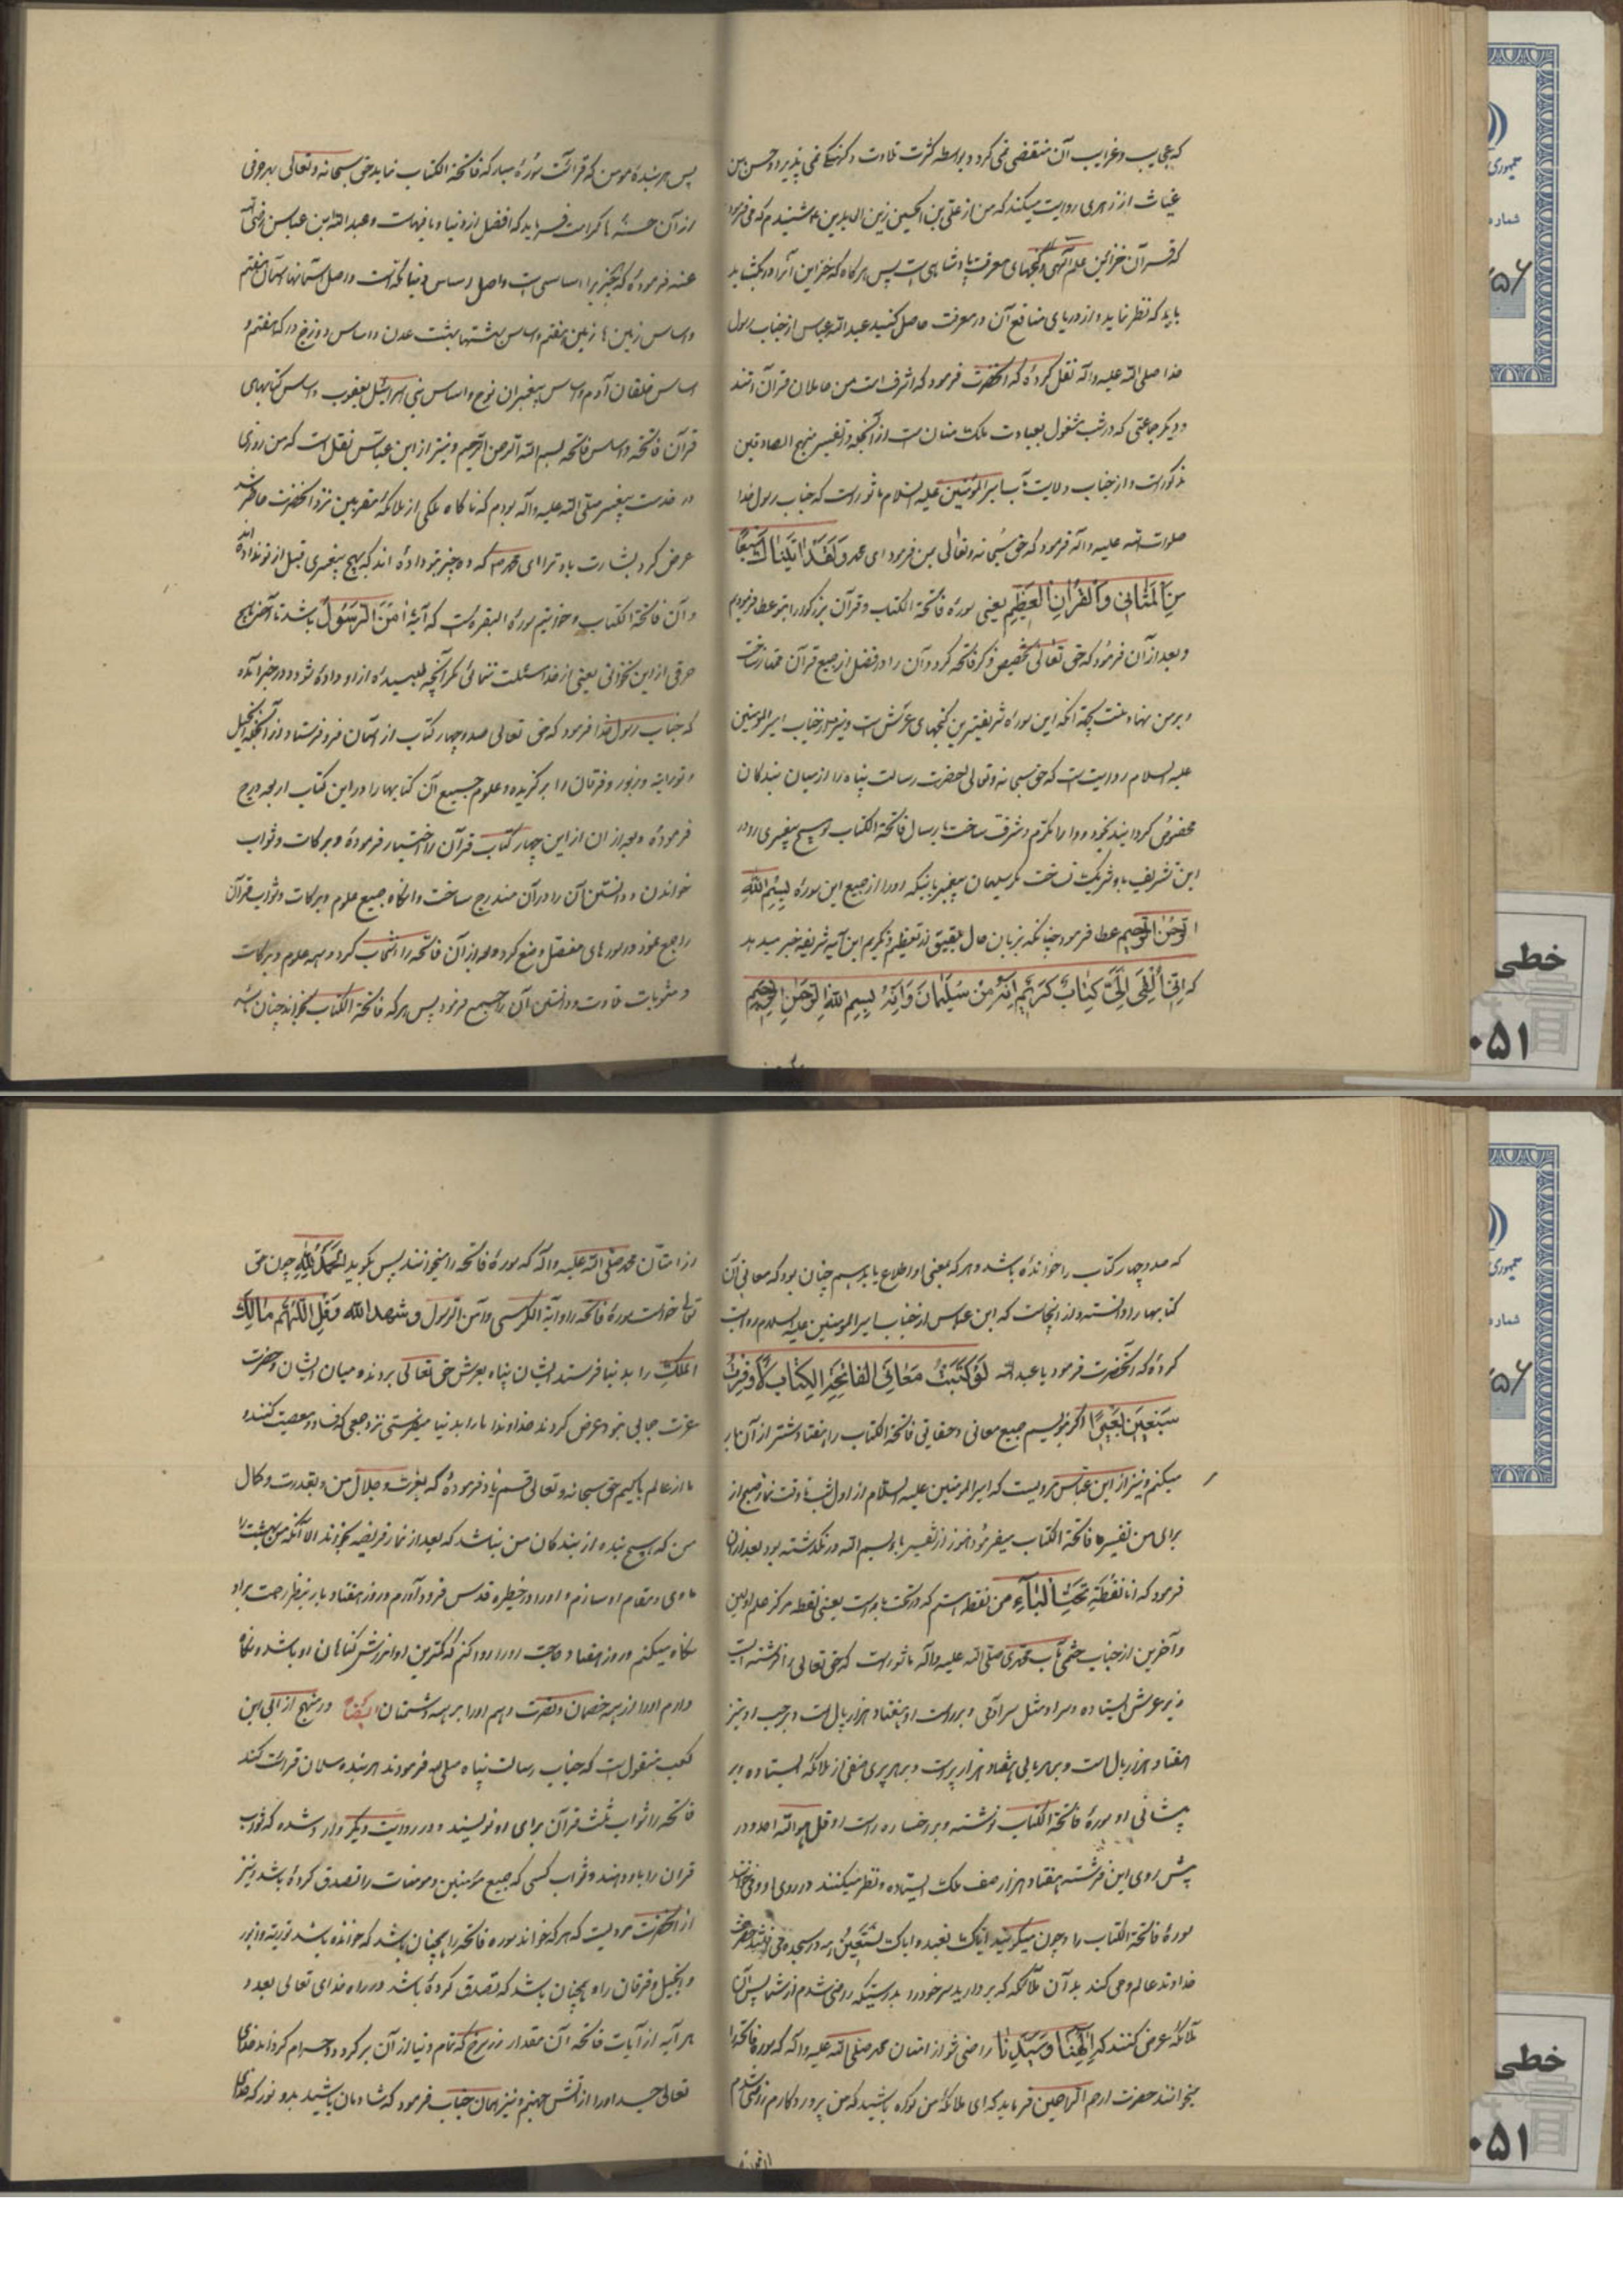 که عجایب و غرایب آن منقضی نمی گردد و بواسطه کثرت تلاوت و کهنگی نمی پذیرد و حسن بن
غیاث از زهری روایت میکند که من از علی بن الحسین زین العابدین ع شنیدم که می فرمود
که قرآن خزاین علم الهی و گنجهای معرفت پادشاهی است پس هر گاه که خزاین آنرا در بگشاید
باید که نظر نماید و از دریای منافع آن در معرفت حاصل کنید عبد الله عباس از جناب رسول
خدا صلی الله علیه و آله نقل کرده که آنحضرت فرمود که اشرف امت من حاملان قرآن اند
و دیگر جماعتی که در شب مشغول بعبادت ملک منان است از آنجمله در تفسیر منهج الصادقین
مذکور است و از جناب ولایت مآب امیر المؤمنین علیه السلام ماثور است که جناب رسول خدا
صلوات الله علیه و آله فرمود که حق سبحانه و تعالی بمن فرمود ای محمد وَلَقَدْ اٰتَیْنَاكَ سَبْعًا
مِنَ الْمَثَانِي وَالْقُرْاٰنَ الْعَظِیْمَ یعنی سورهٔ فاتحة الکتاب و قرآن بزرگوار را بتو عطا فرمودیم
و بعد از آن فرمود که حق تعالی تخصیص ذکر فاتحه کرد و آن را در فضل از جمیع قرآن ممتاز ساخت
و بر من نهاد منت بجهة آنکه این سورهٔ شریفترین گنجهای عرش است و نیز از جناب امیر المؤمنین
علیه السلام روایت است که حق سبحانه و تعالی حضرت رسالت پناه را از میان بندگان
مخصوص گردانید بخود و او را مکرم و مشرف ساخت بارسال فاتحة الکتاب و هیچ پیغمبری را در
این تشریف باو شریک نساخت مگر سلیمان پیغمبر باینکه او را از جمیع این سوره بِسْمِ اللّٰهِ
الرَّحْمٰنِ الرَّحِیْمِ عطا فرمود چنانکه بزبان حال بلقیس در تعظیم و تکریم این آیه شریفه خبر میدهد
که اِنِّي اُلْقِيَ اِلَيَّ كِتَابٌ كَرِیْمٌ اِنَّهُ مِنْ سُلَیْمَانَ وَ اِنَّهُ بِسْمِ اللّٰهِ الرَّحْمٰنِ الرَّحِیْمِ
پس هر بندهٔ مومن که قرائت سورهٔ مبارکه فاتحة الکتاب نماید حق سبحانه و تعالی بهر حرفی
از آن حسنهٔ باو کرامت فرماید که افضل از دنیا و ما فیهاست و عبد الله ابن عباس رضی الله
عنه فرموده که هر چیز را اساسی است و اصل و اساس دنیا مکه است و اصل آسمانها آسمان هفتم
و اساس زمین ها زمین هفتم و اساس بهشتها بهشت عدن و اساس دوزخ درکه هفتم و
اساس خلقان آدم و اساس پیغمبران نوح و اساس بنی اسرائیل یعقوب و اساس کتابهای
قرآن فاتحه و اساس فاتحه بسم الله الرحمن الرحیم و نیز از ابن عباس نقل است که من روزی
در خدمت پیغمبر صلی الله علیه و آله بودم که ناگاه ملکی از ملائکهٔ مقربین نزد آنحضرت حاضر شد
عرض کرد بشارت باد ترا ای محمد ص که دو چیز بتو داده اند که بهیچ پیغمبری قبل از تو نداده اند
و آن فاتحة الکتاب و خواتیم سورهٔ البقره است که آیهٔ اٰمَنَ الرَّسُولُ باشد تا آخر هیچ
حرفی از این نخوانی یعنی از خدا مسئلت ننمائی مگر آنچه طلبیدهٔ از او داده شود و در خبر آمده
که جناب رسول خدا فرمود که حق تعالی صد و چهار کتاب از آسمان فرو فرستاد و از آنجمله انجیل
و توراة و زبور و فرقان را برگزیده و علوم جمیع آن کتابها را در این کتاب اربعه درج
فرموده و بعد از ان از این چهار کتاب قرآن را اختیار فرموده و برکات و ثواب
خواندن و دانستن آن را در آن مندرج ساخت و آنگاه جمیع علوم و برکات و ثواب قرآن
راجع نمود و در سورهای مفصل وضع کرد و بعد از آن فاتحه را انتخاب کرد و همه علوم و برکات
و مثوبات تلاوت و دانستن آن را جمع فرمود پس هر که فاتحة الکتاب بخواند چنان باشد
که صد و چهار کتاب را خوانده باشد و هر که بمعنی او اطلاع یابد همچنان بود که معانی آن
کتابها را دانسته و از اینجاست که ابن عباس از جناب امیر المومنین علیه السلام روایت
کرده که آنحضرت فرمود یا عبد الله لَوْ كَتَبْتُ مَعَانِيَ الْفَاتِحَةِ الْكِتَابِ لَاَوْقَرْتُ
سَبْعِیْنَ بَعِیْرًا اگر بنویسم جمیع معانی و حقایق فاتحة الکتاب را هفتاد شتر از آن بار
میکنم و نیز از ابن عباس مرویست که امیر المومنین علیه السلام از اول شب تا وقت نماز صبح از
برای من تفسیر فاتحة الکتاب میفرمود هنوز از تفسیر باء بسم الله در نگذشته بود بعد از ان
فرمود که انا نُقْطَةُ تَحْتَ الْبَاءِ من نقطه استم که در تحت با است یعنی نقطه مرکز علم اولین
و آخرین از جناب ختمی مآب محمدی صلی الله علیه و آله ماثور است که حق تعالی را فرشته ایست
در زیر عرش ایستاده و سر او مثل سر آدمی و بر راست او هفتاد هزار بال است و بر چپ او نیز
هفتاد هزار بال است و بر هر بالی هفتاد هزار پر است و بر هر پری صفی از ملائکه ایستاده و بر
پیشانی او سورهٔ فاتحة الکتاب نوشته و بر رخساره راست او قل هو الله احد و در
پیش روی این فرشته هفتاد هزار صف ملک ایستاده و نظر میکنند در روی او و می خوانند
سورهٔ فاتحة الکتاب را و چون میگویند ایاک نعبد و ایاک نَسْتَعِیْنُ همه در سجده می افتند حضرت
خداوند عالم وحی کند بدان ملائکه که بردارید سر خود را بدرستیکه راضی شدم از شما پس آن
ملائکه عرض کنند که اِلٰهَنَا وَ سَیِّدَنَا راضی شو از امتان محمد صلی الله علیه و آله که سوره فاتحه را
میخوانند حضرت ارحم الراحمین فرماید که ای ملائکه من گواه باشید که من پروردگارم راضی شدم
از امتان محمد صلی الله علیه و آله که سورهٔ فاتحه را میخوانند پس بگوید اَلْحَمْدُ لِلّٰهِ چون حق
تعالی خواست سورهٔ فاتحه را و آیة الکرسی و آمن الرسول و شهد الله وَ قُلِ اللّٰهُمَّ مَالِكَ
الملک را بدنیا فرستد ایشان پناه بعرش حق تعالی بردند و میان ایشان و حضرت
عزت حجابی نبود عرض کردند خداوندا ما را بدنیا میفرستی نزد جمعی که فساد و معصیت کنند و
ما از عالم پاکیم حق سبحانه و تعالی قسم یاد فرموده که بعزت و جلال من و بقدرت و کمال
من که هیچ بنده از بندگان من نباشد که بعد از نماز فریضه بخواند الا آنکه من بهشت را
ماوی و مقام او سازم و او را در حظیره قدس فرود آورم و روز هفتاد بار بنظر رحمت بر او
نگاه میکنم و روز هفتاد حاجت او را روا کنم که کمترین او آمرزش گناهان او باشد و نگاه
دارم او را از همه خصمان و نصرت دهم او را بر همه دشمنان ایضاً در منهج از ابی بن
کعب منقول است که جناب رسالت پناه صلعم فرمودند هر بنده مسلمان قرائت کند
فاتحه را ثواب ثلث قرآن برای او نویسند و در روایت دیگر وارد شده که ثواب
قران را باو دهند و ثواب کسی که جمیع مؤمنین و مومنات را تصدق کرده باشد و نیز
از آنحضرت مرویست که هر که خواند سوره فاتحه را همچنان باشد که خوانده باشد توریة و زبور
و انجیل و فرقان را و همچنان باشد که تصدق کرده باشد در راه خدای تعالی بعدد
هر آیه از آیات فاتحه آن مقدار زر سرخ که تمام دنیا از آن پر گردد و حرام گرداند خدای
تعالی جسد او را از آتش جهنم و نیز همان جناب فرمود که شادمان باشید بدو نور که خدای
خطی
۰۵۱